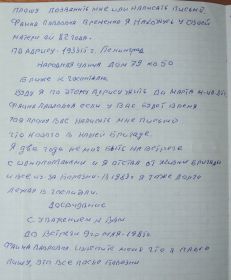 прошу позвонить мне или написать письмо.
Фаина Павловна временно я нахожусь у своей
матери ей 82 года.
По адресу - 193315 г. Ленинград
Народная улица дом 79 кв 50
ближе к госпиталю
Буду я по этому адресу жить до марта м-ца 85г
Фаина Павловна если у Вас будет время
то прошу Вас написать мне письмо
что нового в нашей бригаде.
Я два года не мог быть на встрече
с однополчанами и я отстал от жизни бригады
и все из за болезни. В 1983г я тоже долго
лежал в госпитали.
До свидание
С уважением к Вам
До встречи 9го мая - 1985г.
Фаина Павловна извените меня что я плохо
пишу, это все после болезни